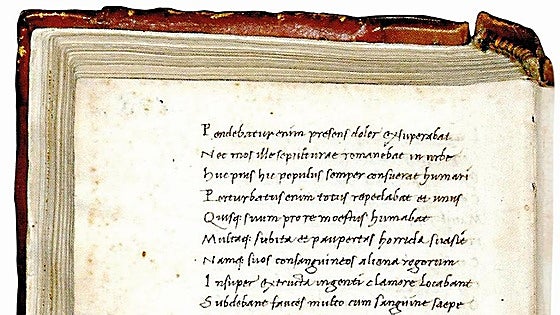 Pendebatur enim presens dolor exsuperabat
Nec mos ille sepulturae remanebat in urbe
Huc pres hic populus semper consuerat humari
Perturbatus enim totus repedabat et unus
Quisq: suum pro re moestus humabat
Multaq: subita et paupertas horrida suasit
Namq: suos consanguineos aliena rogorum
Insuper extructa ingenti clamore locabant
Subdebant fauces multo cum sanguine saepe